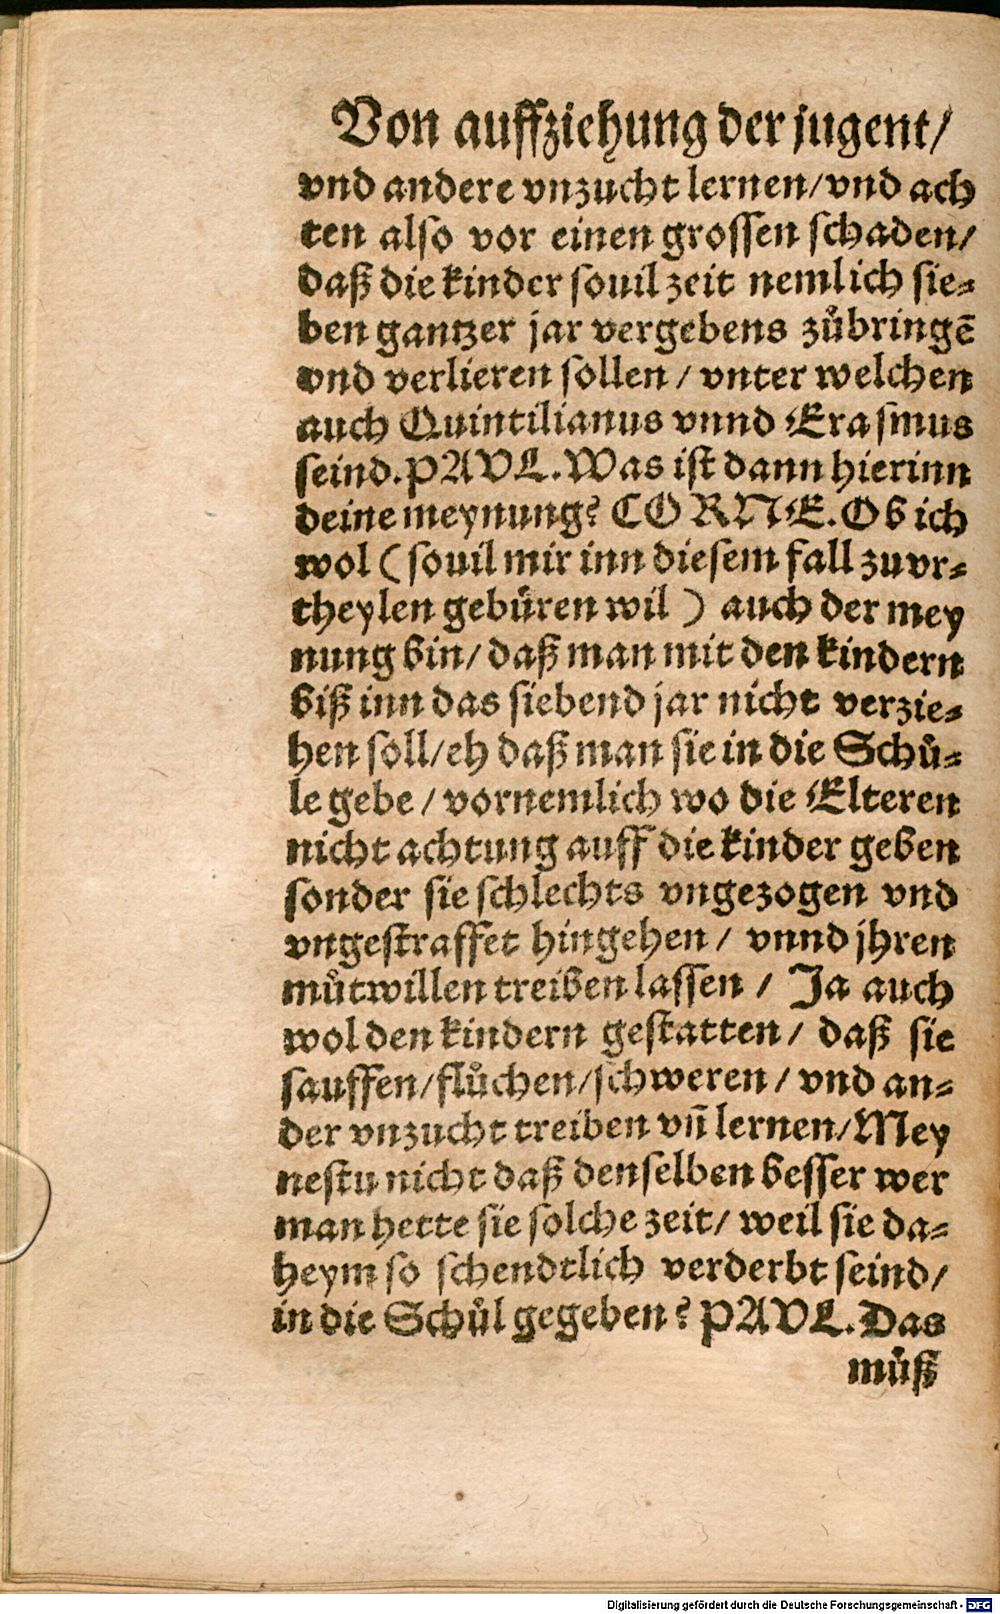 Von auffziehung der jugent/
vnd andere vnzucht lernen/vnd ach
ten also vor einen grossen schaden/
daß die kinder souil zeit nemlich sie⸗
ben gantzer jar vergebens zůbringē
vnd verlieren sollen / vnter welchen
auch Quintilianus vnnd Erasmus
seind. PAVL. Was ist dann hierinn
deine meynung? CORNE. Ob ich
wol ( souil mir inn diesem fall zuvr⸗
theylen gebüren wil ) auch der mey
nung bin/ daß man mit den kindern
biß inn das siebend jar nicht verzie⸗
hen soll/eh daß man sie in die Schů⸗
le gebe / vornemlich wo die Elteren
nicht achtung auff die kinder geben
sonder sie schlechts vngezogen vnd
vngestraffet hingehen / vnnd jhren
můtwillen treiben lassen / Ja auch
wol den kindern gestatten / daß sie
sauffen/flůchen/schweren / vnd an⸗
der vnzucht treiben vn̄ lernen/Mey
nestu nicht daß denselben besser wer
man hette sie solche zeit/ weil sie da⸗
heym so schendtlich verderbt seind/
in die Schůl gegeben? PAVL. Das
můß
Digitalisierung gefördert durch die Deutsche Forschungsgemeinschaft - DFG